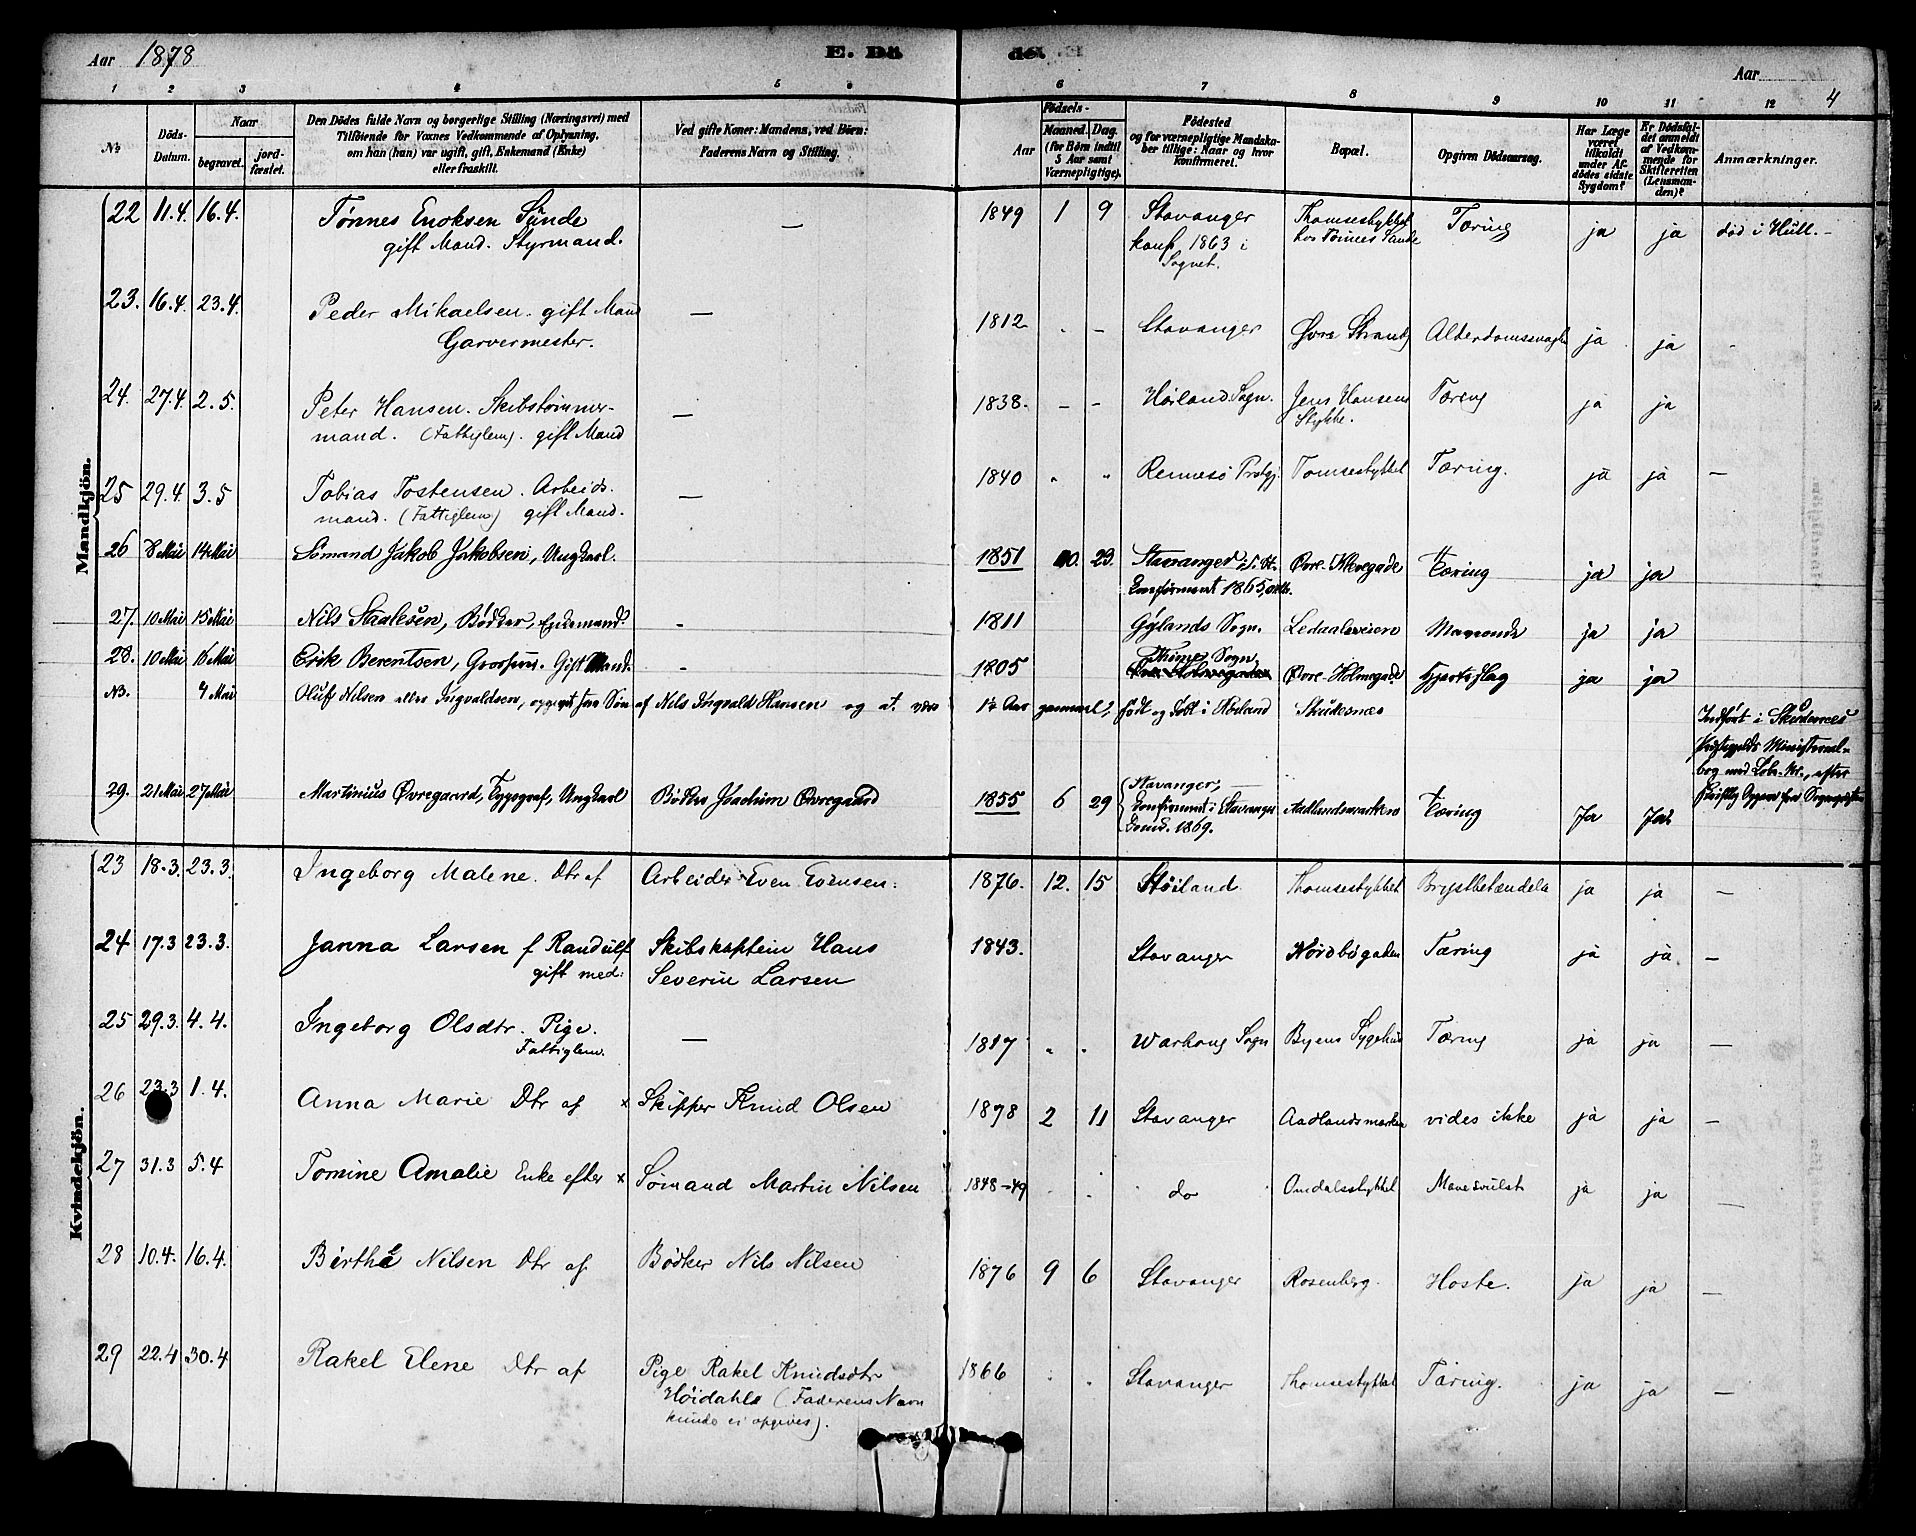 Aar 1878
E. Dö
de.
Aar
4
1 2 3 4 5 6 7 8 9 10 11 12
№
Döds-Datum.
Naar
begravet.
jord-fæstet.
Den Dödes fulde Navn og borgerlige Stilling (Næringsvei) med
Tilföiende for Voxnes Vedkommende af Oplysning,
om han (hun) var ugift, gift, Enkemand (Enke)
eller fraskilt.
Ved gifte Koner: Mandens, ved Börn:
Faderens Navn og Stilling.
Födsels-
Aar
Maaned. Dag.
(for Börn indtil
5 Aar samt
Værnepligtige).
Födested
og for værnepligtige Mandska-
ber tillige: Naar og hvor
konfirmeret.
Bopæl.
Opgiven Dödsaarsag.
Har Læge
været
tilkaldt
under Af-
dödes sidste
Sygdom?
Er Dödsfal-
det anmeldt
af Vedkom-
mende for
Skifteretten
(Lensman-
den)?
Anmærkninger.
Mandkjön.
22 11.4. 16.4. Tønnes Enoksen Sunde — 1849 1 9 Stavanger Thomsestykket Tæring ja ja död i Hull. –
gift Mand. Styrmand. konf. 1863 i hos Tönnes Sunde
Sognet.
23. 16.4. 23.4. Peder Mikaelsen. gift Mand — 1812 - – Stavanger Øvre Strandg Alderdomssvaghe ja ja -
Garvermester.
24. 27.4. 2.5. Peter Hansen. Skibstømmer- — 1838. – – Høiland Sogn. Jens Hansens Tæring ja ja
mand. (Fattiglem). gift Mand Stykke.
25 29.4. 3.5 Tobias Tostensen. Arbeids- — 1840 " " Rennesö Prstgj. Tomsestykket Tæring. ja ja —
mand. (Fattiglem) gift Mand.
26 8 Mai 14 Mai Sömand Jakob Jakobsen, Ungkarl. 1851 10. 23. Stavanger Øvre Kleregade Tæring ja ja
Confirmeret 1865, oktb.
27. 10 Mai 15 Mai Nils Staalesen, Bödker, Enkemand. - 1811 Gylands Sogn. Ledaalsveien Maveonde ja ja
28. 10 Mai 16 Mai Erik Berentsen, Gift Mand. - 1805 Thime Sogn, Øvre Holmegade Hjerteslag ja ja
NB. 9 Mai Oluf Nilsen eller Ingvaldsen, opgivet for Søn af Nils Ingvald Hansen og at være 1½ Aar gammel, født og døbt i Høiland Skudesnæs
Indført i Skudesnes
Præstegjelds Ministerial-
bog med Löbe-Nr., efter
skriftlig Opgave fra Sognepræsten
29. 21 Mai 27 Mai Martinius Øvregaard, Typograf, Ungkarl Bödker Joachim Øvregaard 1855 6 29 Stavanger, Aadlandsmarken Tæring Ja Ja.
Confirmeret i Stavanger
1869.
Kvindekjön.
23 18.3. 23.3. Ingeborg Malene. Dtr af Arbeider Even Evensen. 1876. 12. 15 Høiland Thomsestykket Brystbetændelse ja ja —
24 17.3 23.3. Janna Larsen f Randulf Skibskaptein Hans 1843. Stavanger Nordbögaden Tæring ja ja –
gift med: Severin Larsen
25 29.3. 4.4. Ingeborg Olsdtr. Pige. — 1817 " . Warhaug Sogn Byens Sygehus Tæring ja ja —
Fattiglem.
26 23.3 1.4. Anna Marie Dtr af × Skipper Knud Olsen 1878 2 11 Stavanger Aadlandsmarken vides ikke ja ja —
27 31.3 5.4 Tomine Amalie Enke efter × Sömand Martin Nilsen 1848–49 . . do Omdalsstykket Mavesvulst ja ja —
28 10.4. 16.4. Birthe Nilsen Dtr af Bödker Nils Nilsen 1876 9 6 Stavanger Rosenberg. Hoste. ja ja —
29 22.4 30.4 Rakel Elene Dtr af Pige Rakel Knudsdtr 1866 . . Stavanger Thomsestykket Tæring. ja ja —
Höidahls (Faderens Navn
kunde ei opgives).